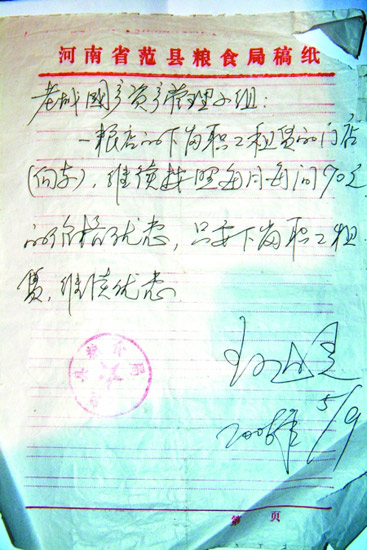 河南省范县粮食局稿纸
老城国产资产管理小组:
一粮店的下岗职工租赁的门店
(向东),继续按照每月每间90元
的价格优惠,只要下岗职工租
赁,继续优惠
县粮食局
5/9
第 页